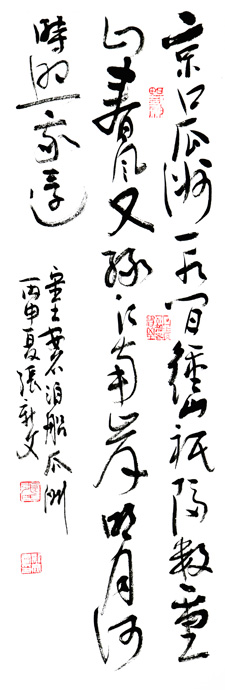 京口瓜洲一水間鍾山祇隔數重
山春風又綠江南岸明月何
時照我還
王安石泊船瓜洲
丙申夏張新文